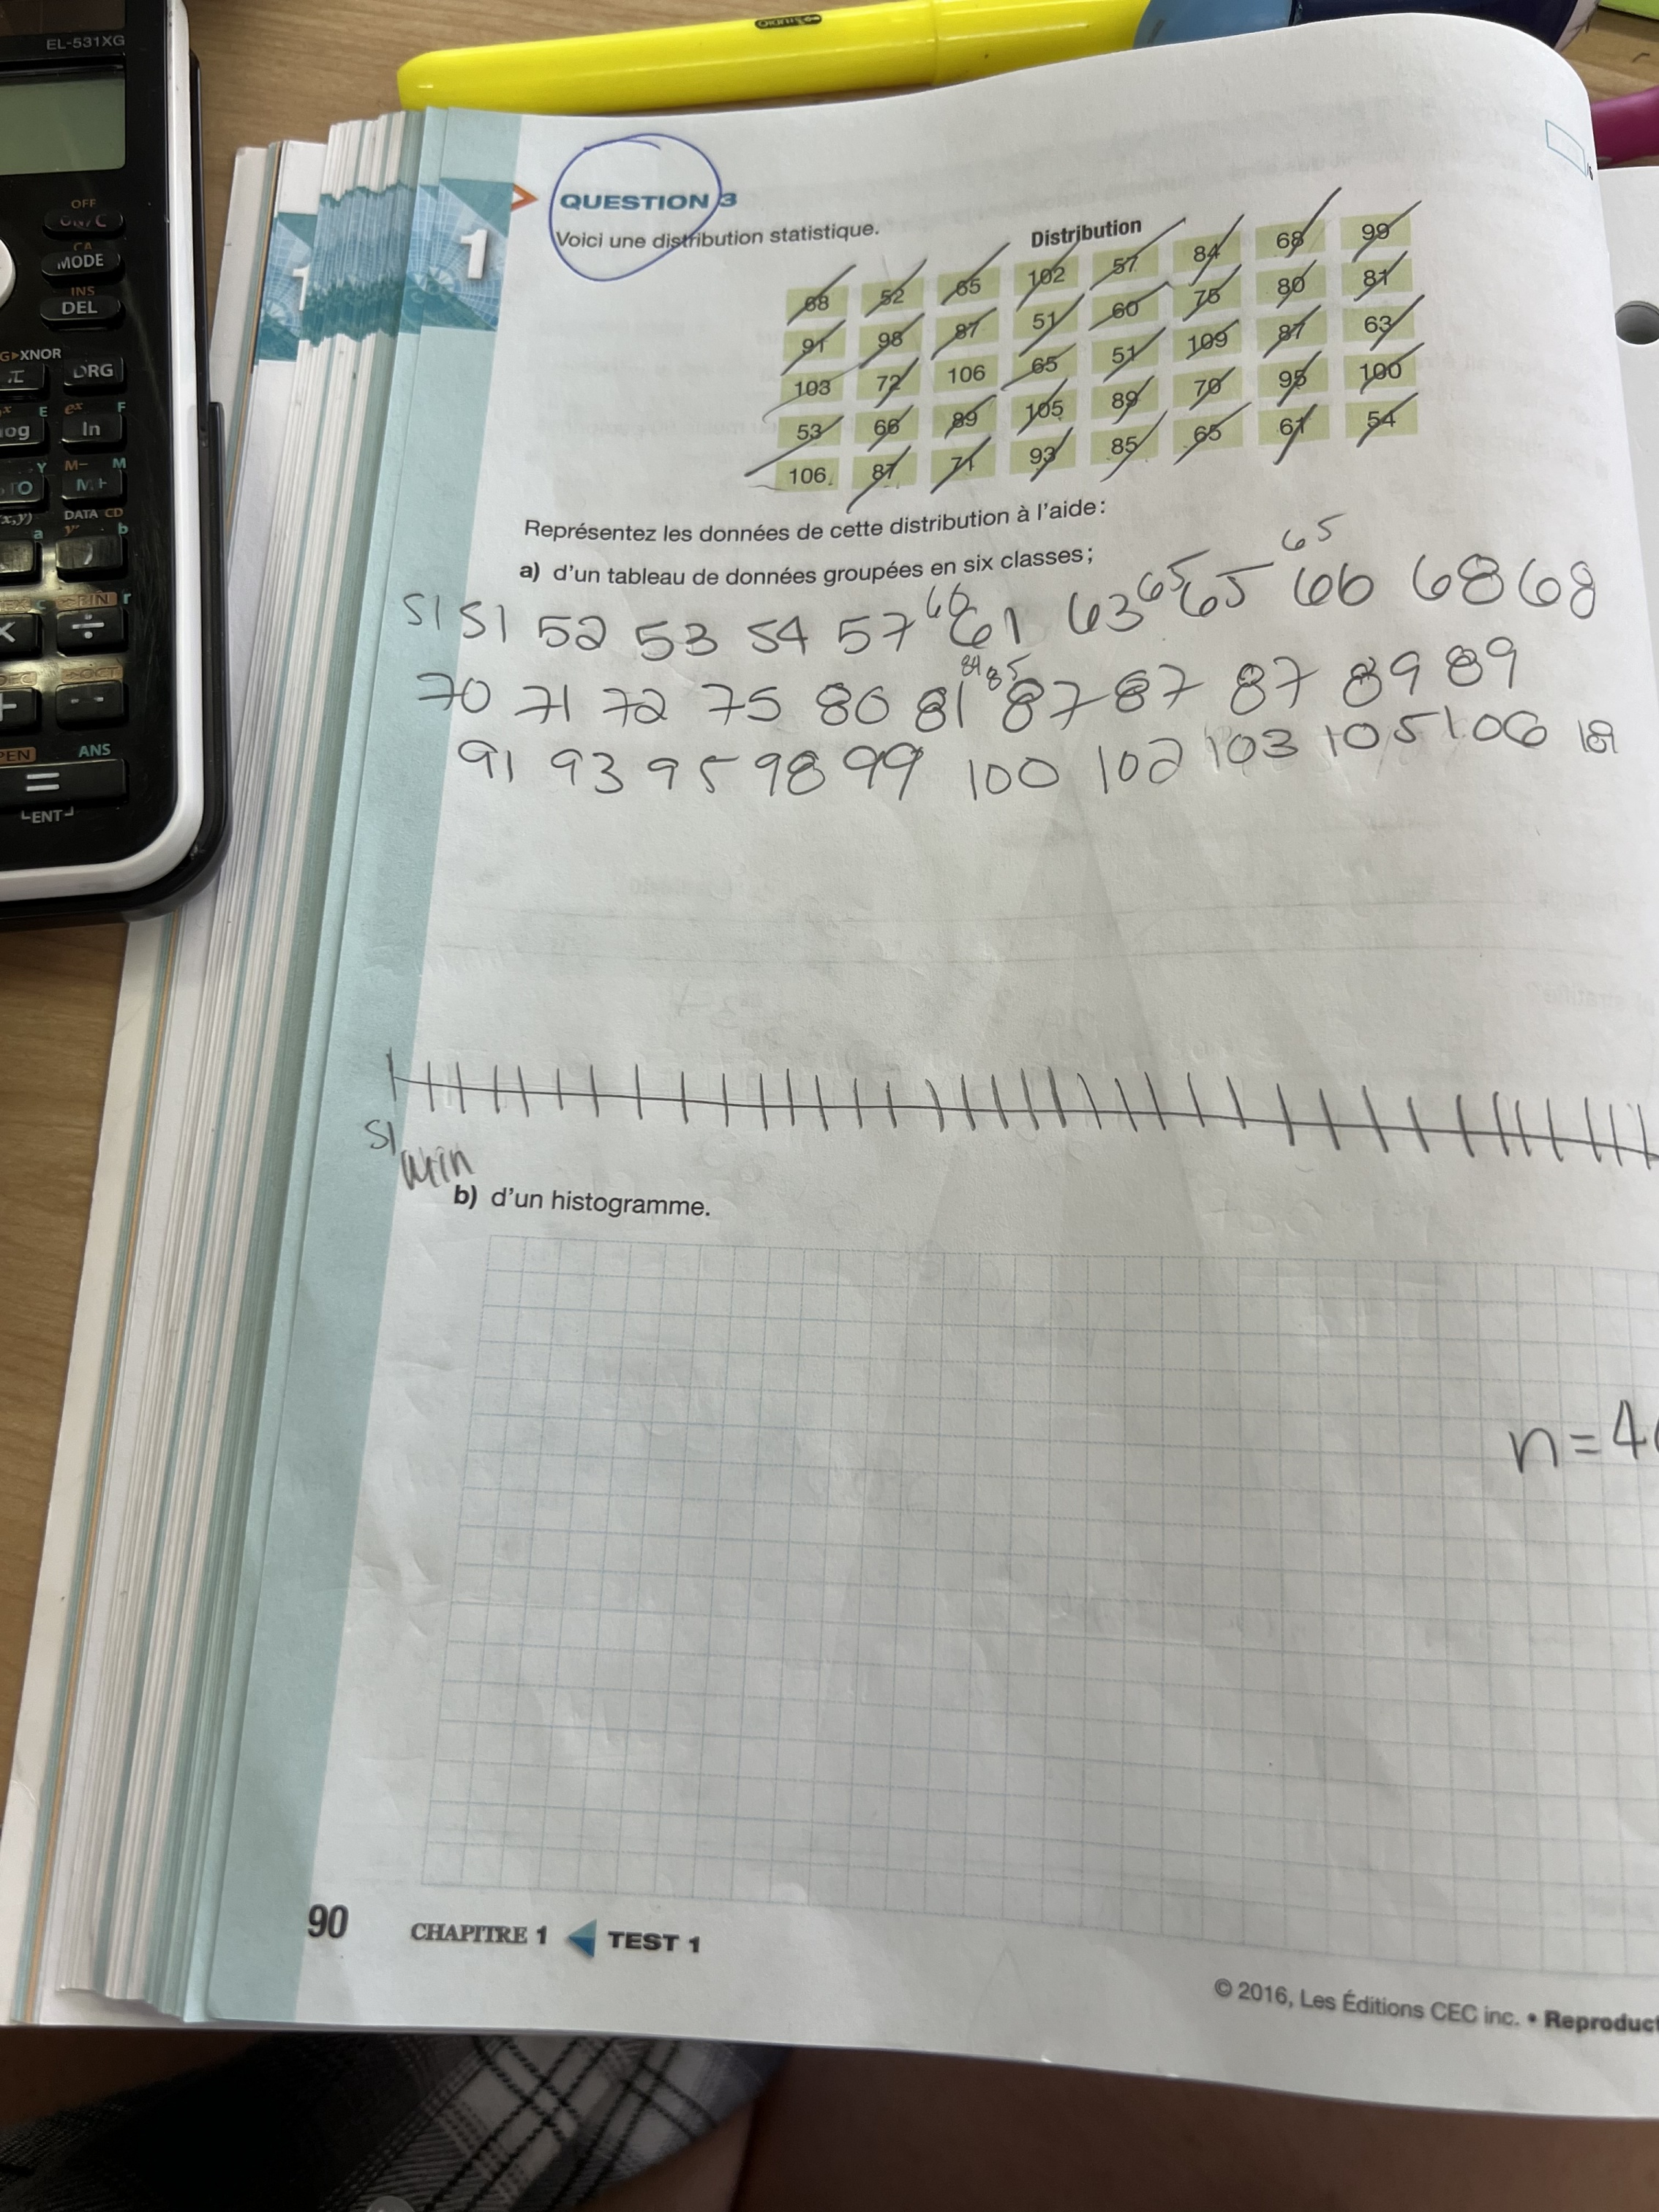 EL-531XG
OFF
ON/C
CA
MODE
INS
DEL
XNOR
π DRG
E e^x F
log In
Y M- M
STO M+
(x,y) DATA CD
a b
r
× ÷
ANS
=
ENT
1
1
QUESTION 3
Voici une distribution statistique.
Distribution
68 52 65 102 57 84 68 99
91 98 87 51 60 75 80 81
103 72 106 65 51 109 87 63
53 66 89 105 89 70 95 100
106 87 71 93 85 65 61 54
Représentez les données de cette distribution à l'aide :
a) d'un tableau de données groupées en six classes ;
51 51 52 53 54 57 60 61 63 65 65 65 66 68 68
70 71 72 75 80 81 84 85 87 87 87 89 89
91 93 95 98 99 100 102 103 105 106
51
min
b) d'un histogramme.
n=4
90 CHAPITRE 1 TEST 1
© 2016, Les Éditions CEC inc. • Reproduct